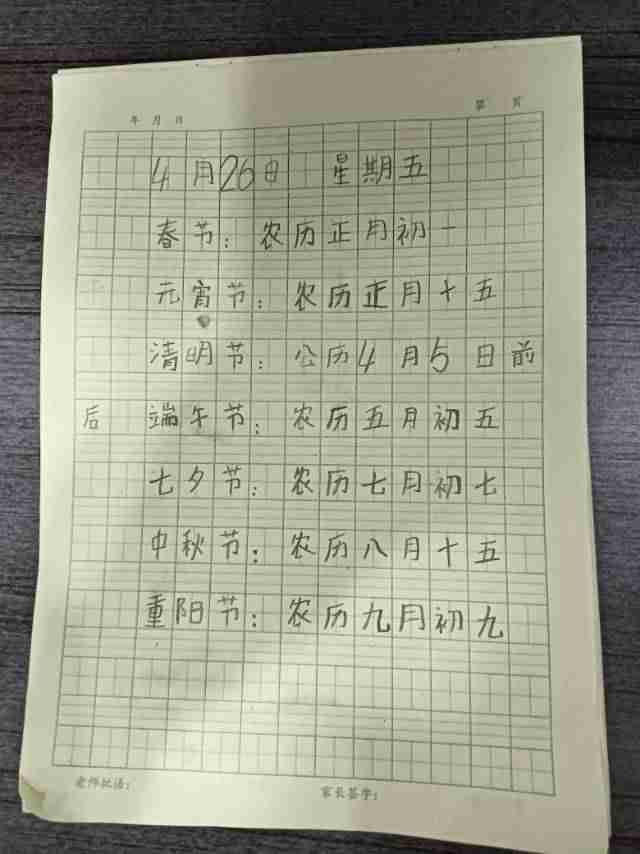 年 月 日 第 页
4月26日 星期五
春节：农历正月初一
元宵节：农历正月十五
清明节：公历4月5日前
后 端午节：农历五月初五
七夕节：农历七月初七
中秋节：农历八月十五
重阳节：农历九月初九
老师批语： 家长签字：